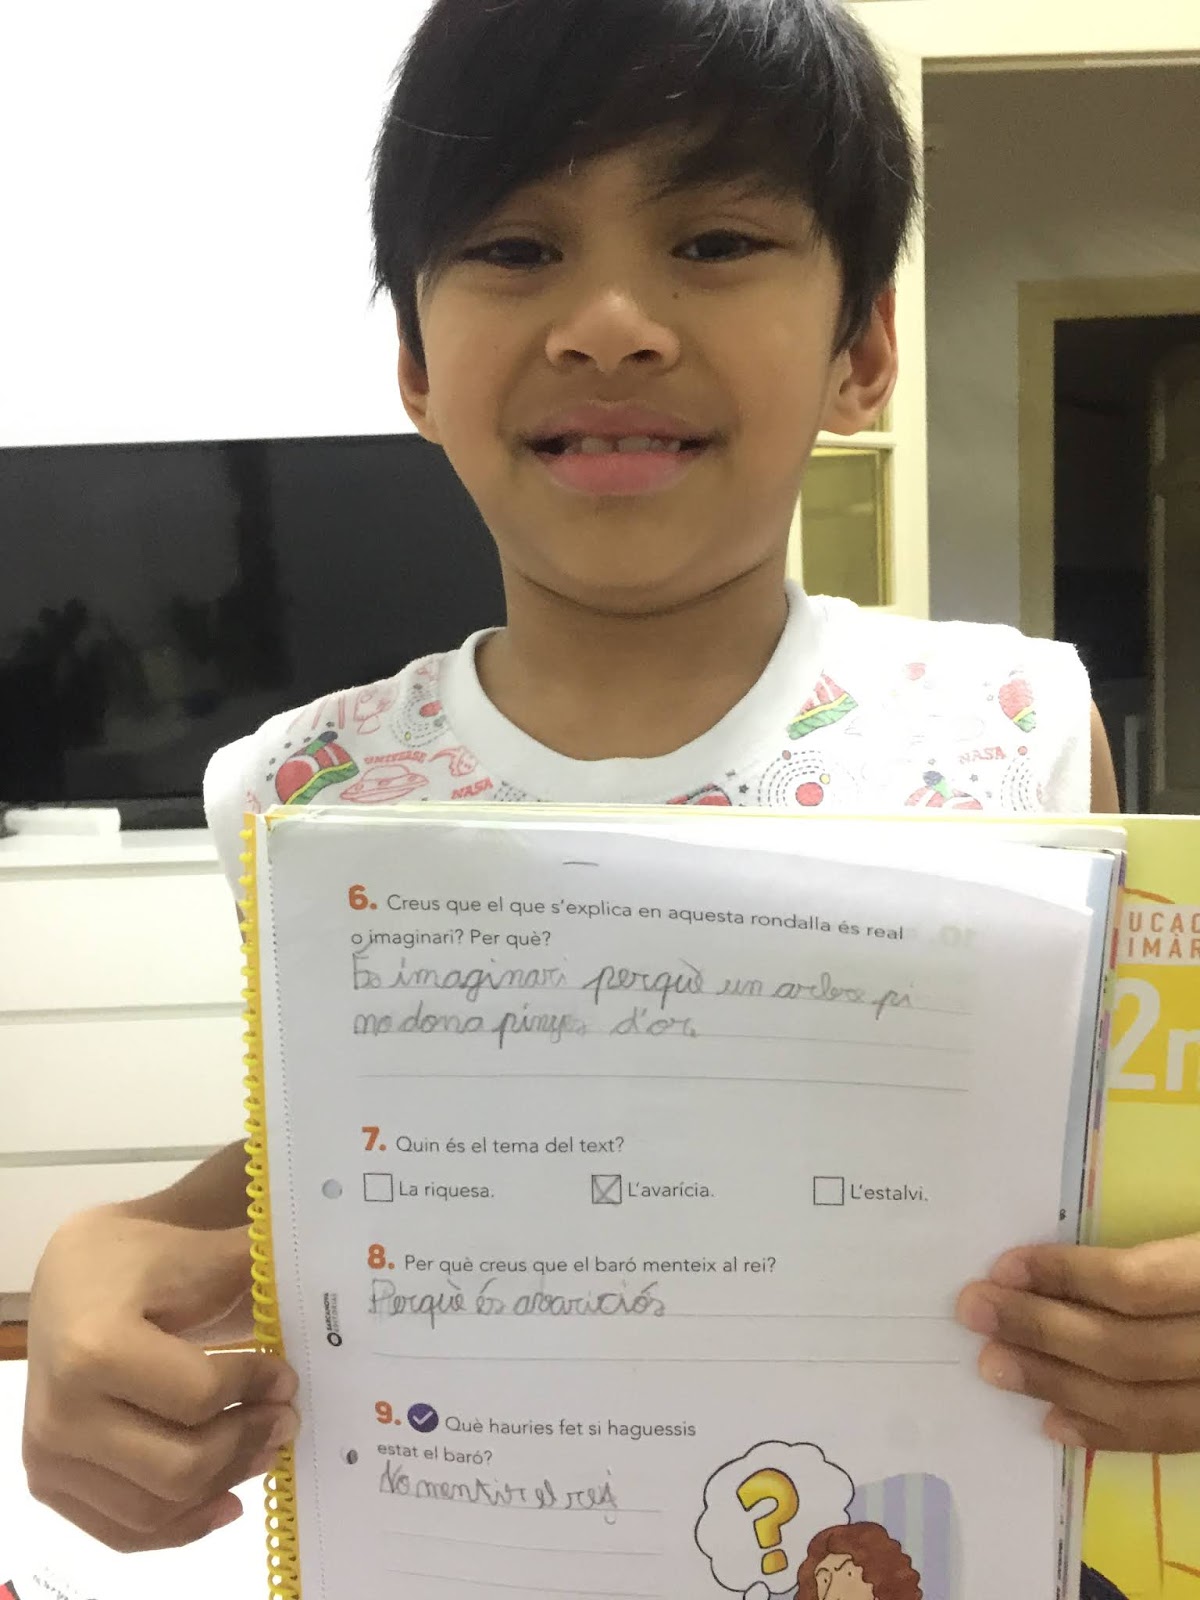 UNIVERSE
NASA
NASA
6. Creus que el que s'explica en aquesta rondalla és real
o imaginari? Per què?
És imaginari perquè un arbre pi
no dona pinyes d'or.
7. Quin és el tema del text?
La riquesa. L'avarícia. L'estalvi.
8. Per què creus que el baró menteix al rei?
Perquè és avariciós
9. Què hauries fet si haguessis
estat el baró?
No mentir el rei
BARCANOVA
EDITORIAL
UCAC
IMÀR
2n